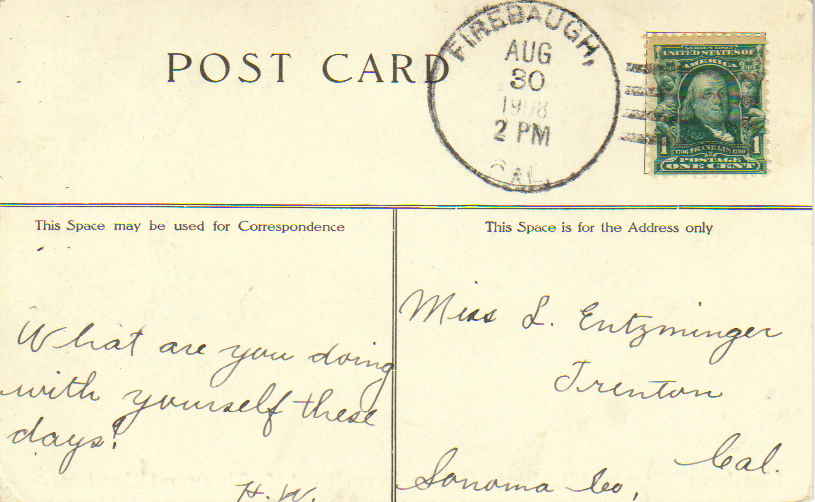 POST CARD
FIREBAUGH,
AUG
30
1908
2 PM
CAL.
UNITED STATES OF
AMERICA
1 FRANKLIN 1
POSTAGE
ONE CENT
This Space may be used for Correspondence
This Space is for the Address only
What are you doing
with yourself these
days!
H. W.
Miss L. Entzminger
Trenton
Cal.
Sonoma Co,